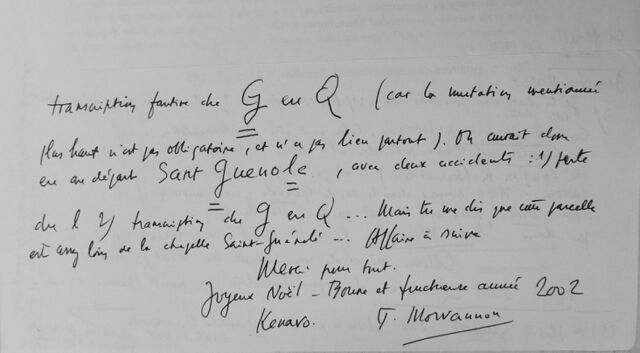 transcription fautive du G en Q (car la mutation mentionnée
plus haut n'est pas obligatoire, et n'a pas lieu partout). On aurait donc
eu au départ Sant Guenole, avec deux accidents : 1/ perte
du l 2/ transcription du g en Q ... Mais tu me dis que cette parcelle
est assez loin de la chapelle Saint-Guénolé ... Affaire à suivre
Merci pour tout.
Joyeux Noël - Bonne et fructueuse année 2002
Kenavo. F. Morvannou